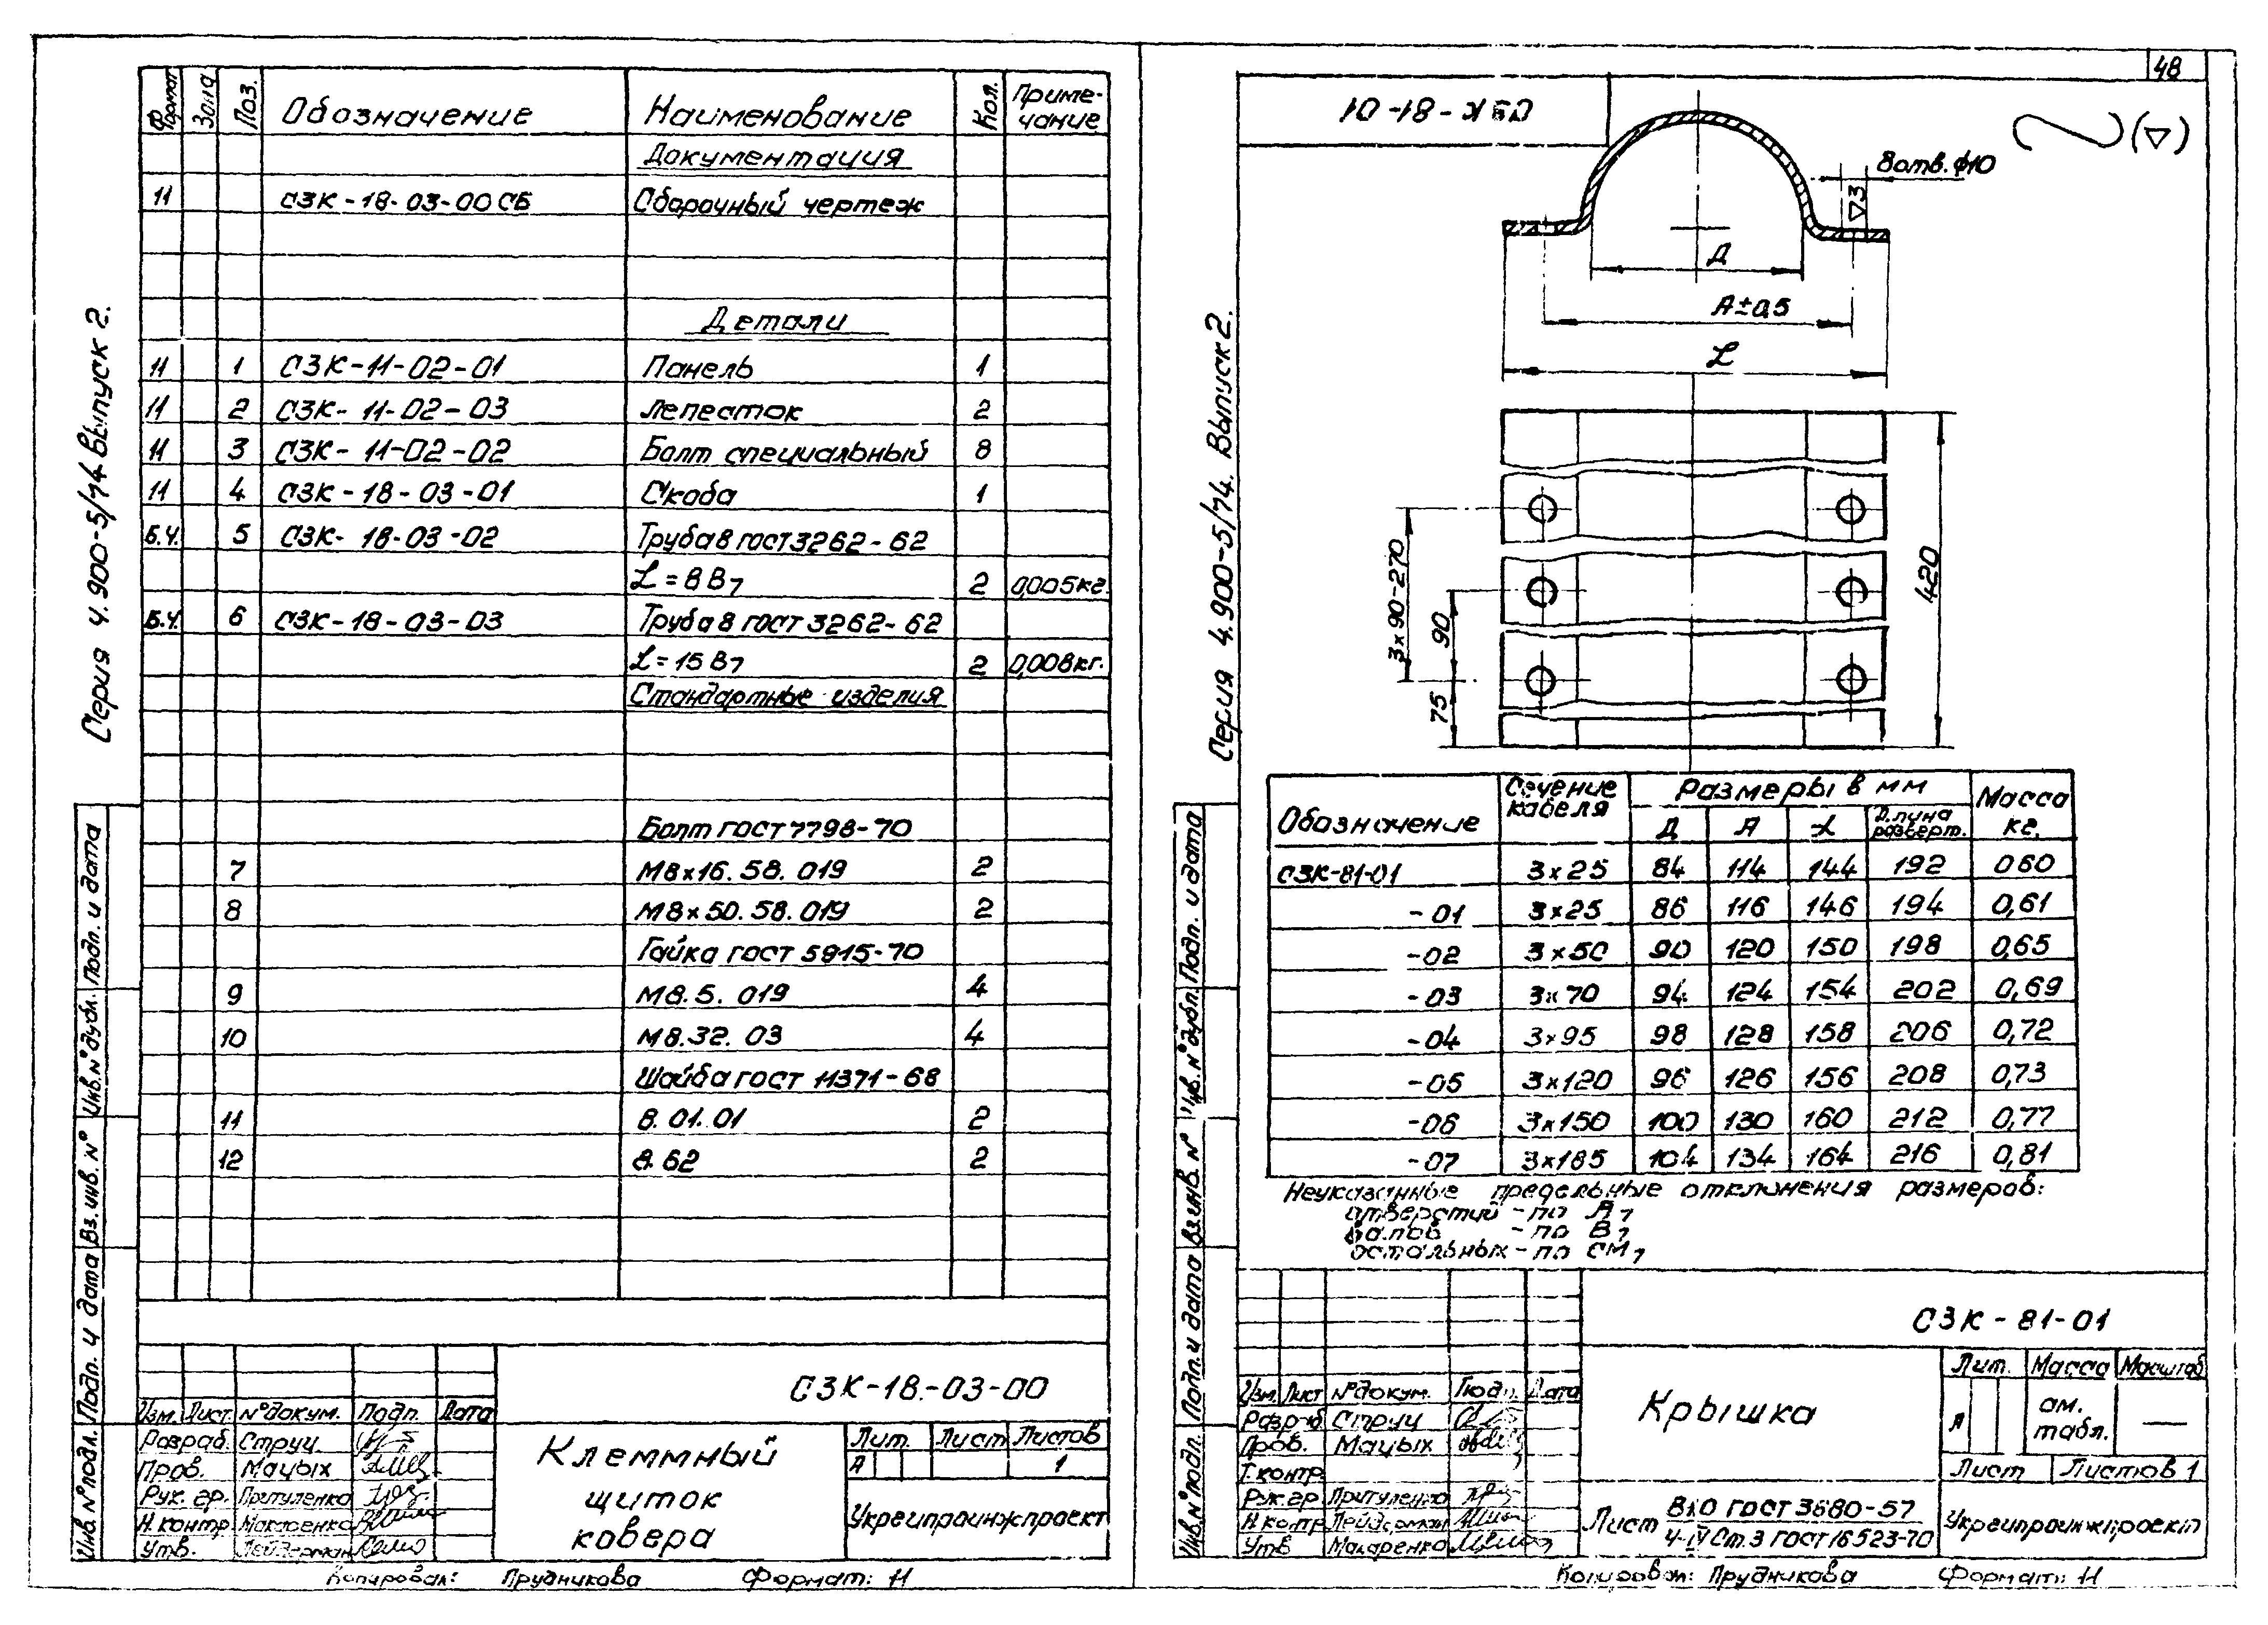 Формат Зона Поз. Обозначение Наименование Кол. Приме-
чание
Документация
11 СЗК-18-03-00 СБ Сборочный чертеж
Детали
11 1 СЗК-11-02-01 Панель 1
11 2 СЗК-11-02-03 Лепесток 2
11 3 СЗК-11-02-02 Болт специальный 8
11 4 СЗК-18-03-01 Скоба 1
Б.Ч. 5 СЗК-18-03-02 Труба 8 ГОСТ 3262-62
L=8 В7 2 0,005кг.
Б.Ч. 6 СЗК-18-03-03 Труба 8 ГОСТ 3262-62
L=15 В7 2 0,008кг.
Стандартные изделия
Болт ГОСТ 7798-70
7 М8х16.58.019 2
8 М8х50.58.019 2
Гайка ГОСТ 5915-70
9 М8.5.019 4
10 М8.32.03 4
Шайба ГОСТ 11371-68
11 8.01.01 2
12 8.62 2
Серия 4.900-5/74 Выпуск 2.
Инв.№ подл. Подп. и дата Вз.инв.№ Инв.№ дубл. Подп. и дата
СЗК-18.-03-00
Изм. Лист №докум. Подп. Дата
Разраб. Струц
Пров. Мацых
Рук. гр. Притуленко
Н.контр Макаренко
Утв. Лейдерман
Клеммный
щиток
ковера
Лит. Лист Листов
А 1
Укргипроинжпроект
Копировал: Прудникова Формат: 11
48
СЗК-81-01
(▽)
8 отв. ϕ10
▽3
Д
А±0,5
L
3х90=270
90
75
420
Серия 4.900-5/74. Выпуск 2.
Обозначение Сечение
кабеля Размеры в мм Масса
кг.
Д А L Длина
разверт.
СЗК-81-01 3х25 84 114 144 192 060
-01 3х25 86 116 146 194 0,61
-02 3х50 90 120 150 198 0,65
-03 3х70 94 124 154 202 0,69
-04 3х95 98 128 158 206 0,72
-05 3х120 96 126 156 208 0,73
-06 3х150 100 130 160 212 0,77
-07 3х185 104 134 164 216 0,81
Неуказанные предельные отклонения размеров:
отверстий - по А7
валов - по В7
остальных - по СМ7
Инв.№ подл. Подп. и дата Вз.инв.№ Инв.№ дубл. Подп. и дата
СЗК-81-01
Изм. Лист №докум. Подп. Дата
Разраб Струц
Пров. Мацых
Т.контр.
Рук.гр Притуленко
Н.контр Лейдерман
Утв Макаренко
Крышка
Лит. Масса Масштаб
А см.
табл. —
Лист Листов 1
Лист 8х0 ГОСТ 3680-57
4-IV Ст.3 ГОСТ 16523-70
Укргипроинжпроект
Копировал: Прудникова Формат: 11